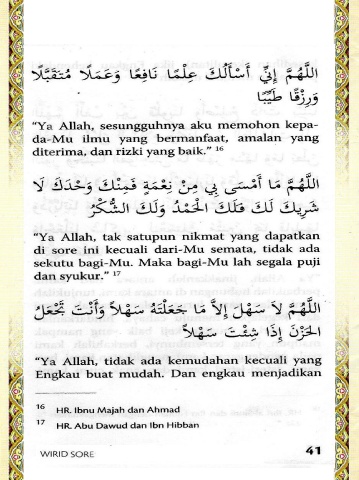 اللَّهُمَّ إِنِّي أَسْأَلُكَ عِلْمًا نَافِعًا وَعَمَلًا مُتَقَبَّلًا
وَرِزْقًا طَيِّبًا
“Ya Allah, sesungguhnya aku memohon kepa-
da-Mu ilmu yang bermanfaat, amalan yang
diterima, dan rizki yang baik.” 16
اللَّهُمَّ مَا أَمْسَى بِي مِنْ نِعْمَةٍ فَمِنْكَ وَحْدَكَ لَا
شَرِيكَ لَكَ فَلَكَ الْحَمْدُ وَلَكَ الشُّكْرُ
“Ya Allah, tak satupun nikmat yang dapatkan
di sore ini kecuali dari-Mu semata, tidak ada
sekutu bagi-Mu. Maka bagi-Mu lah segala puji
dan syukur.” 17
اللَّهُمَّ لَا سَهْلَ إِلاَّ مَا جَعَلْتَهُ سَهْلاً وَأَنْتَ تَجْعَلُ
الحَزْنَ إِذَا شِئْتَ سَهْلاً
“Ya Allah, tidak ada kemudahan kecuali yang
Engkau buat mudah. Dan engkau menjadikan
16 HR. Ibnu Majah dan Ahmad
17 HR. Abu Dawud dan Ibn Hibban
WIRID SORE 41